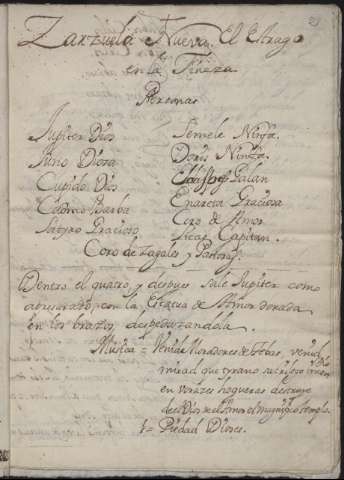 Zarzuela Nueva. El Estrago
en la Fineza
Personas
Jupiter Dios Semele Ninfa.
Juno Diosa Doris Ninfa.
Cupido Dios Galan
Cadmo Barba Enareta Graciosa
Satyro Gracioso Coro de Amor.
Licas Capitan.
Coro de Zagales y Pastoras
Dentro el quatro, y despues sale Jupiter como
apresurado, con la Estatua de Amor dorada
en los brazos, despedazandola.
Musica = Venid Moradores de Tebas, venid
mirad que tyrano sacrilego
en vorazes hogueras destruye
del Dios de el Amor el magnifico templo.
Piedad Dioses.